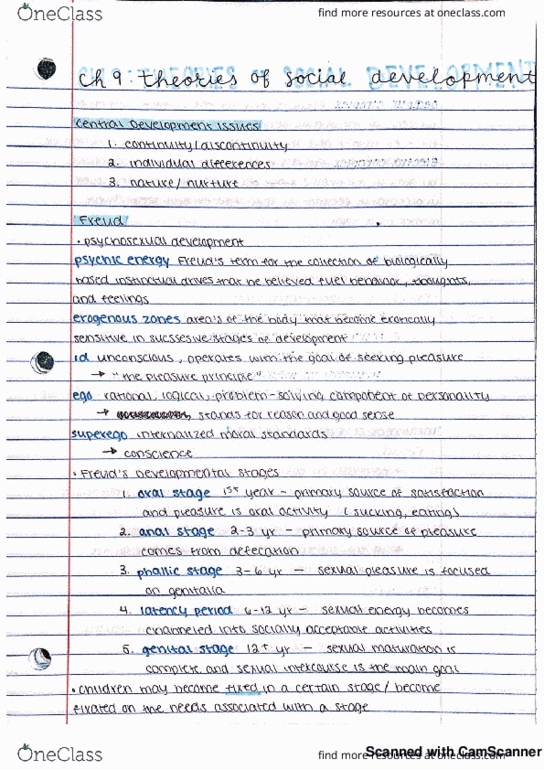 OneClass
find more resources at oneclass.com
Ch 9: theories of social development
Central Development Issues
1. continuity/discontinuity
2. individual differences
3. nature/nurture
Freud
• psychosexual development
psychic energy Freud's term for the collection of biologically
based instinctual drives that he believed fuel behavior, thoughts,
and feelings
erogenous zones area's of the body that become erotically
sensitive in succesive stages of development
id unconscious, operates with the goal of seeking pleasure
→ "the pleasure principle"
ego rational, logical, problem-solving component of personality
→ stands for reason and good sense
superego internalized moral standards
→ conscience
• Freud's Developmental stages
1. oral stage 1st year - primary source of satisfaction
and pleasure is oral activity (sucking, eating)
2. anal stage 2-3 yr - primary source of pleasure
comes from defecation
3. phallic stage 3-6 yr - sexual pleasure is focused
on genitalia
4. latency period 6-12 yr - sexual energy becomes
channeled into socially acceptable activities
5. genital stage 12+ yr - sexual maturation is
complete and sexual intercourse is the main goal
• children may become fixed in a certain stage/become
fixated on the needs associated with a stage
OneClass
find more resources at oneclass.com
Scanned with CamScanner